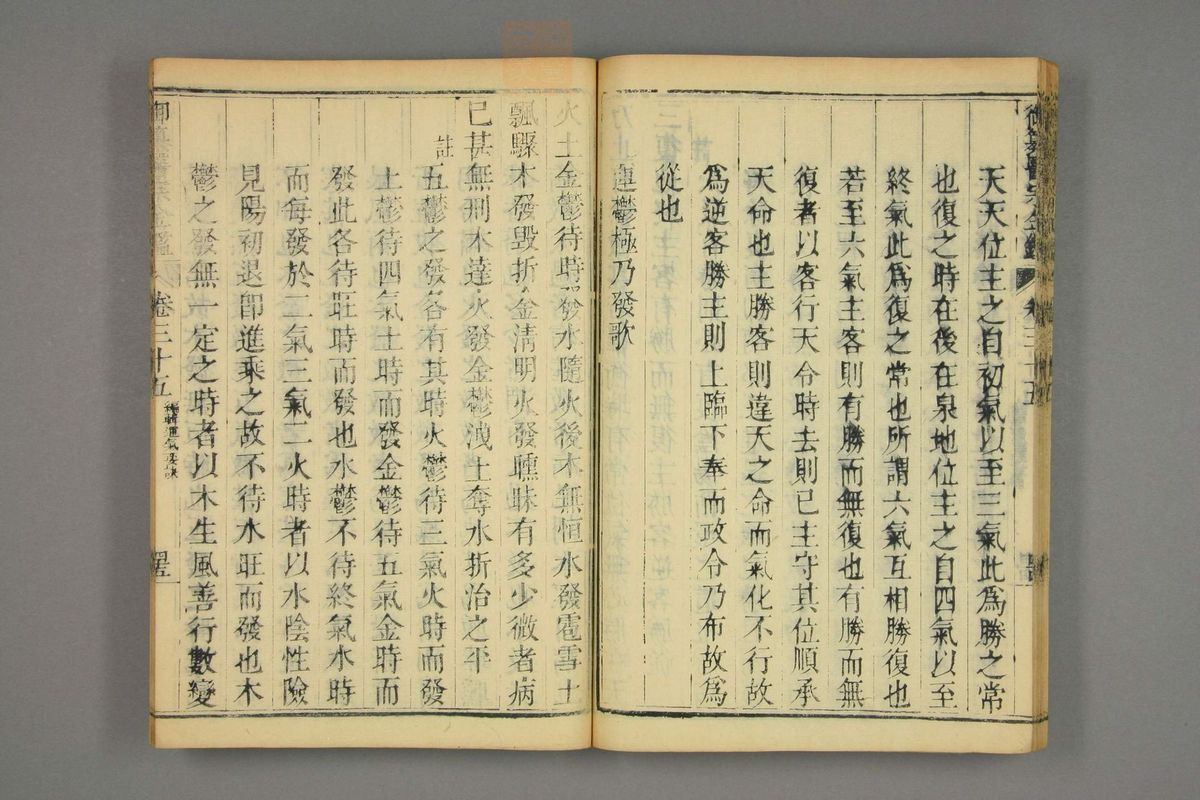 天天位主之自初氣以至三氣此為勝之常
也復之時在後在泉地位主之自四氣以至
終氣此為復之常也所謂六氣互相勝復也
若至六氣主客則有勝而無復也有勝而無
復者以客行天令時去則已主守其位順承
天命也主勝客則違天之命而氣化不行故
為逆客勝主則上臨下奉而政令乃布故為
從也
運鬱極乃發歌
火土金鬱待時發水隨火後木無恒水發雹雪土
飄驟木發毀折金清明火發曛昧有多少微者病
已甚無刑木達火發金鬱洩土奪水折治之平
註
五鬱之發各有其時火鬱待三氣火時而發
土鬱待四氣土時而發金鬱待五氣金時而
發此各待旺時而發也水鬱不待終氣水時
而每發於二氣三氣二火時者以水陰性險
見陽初退即進乘之故不待水旺而發也木
鬱之發無一定之時者以木生風善行數變
卷三十五
編輯運氣要訣